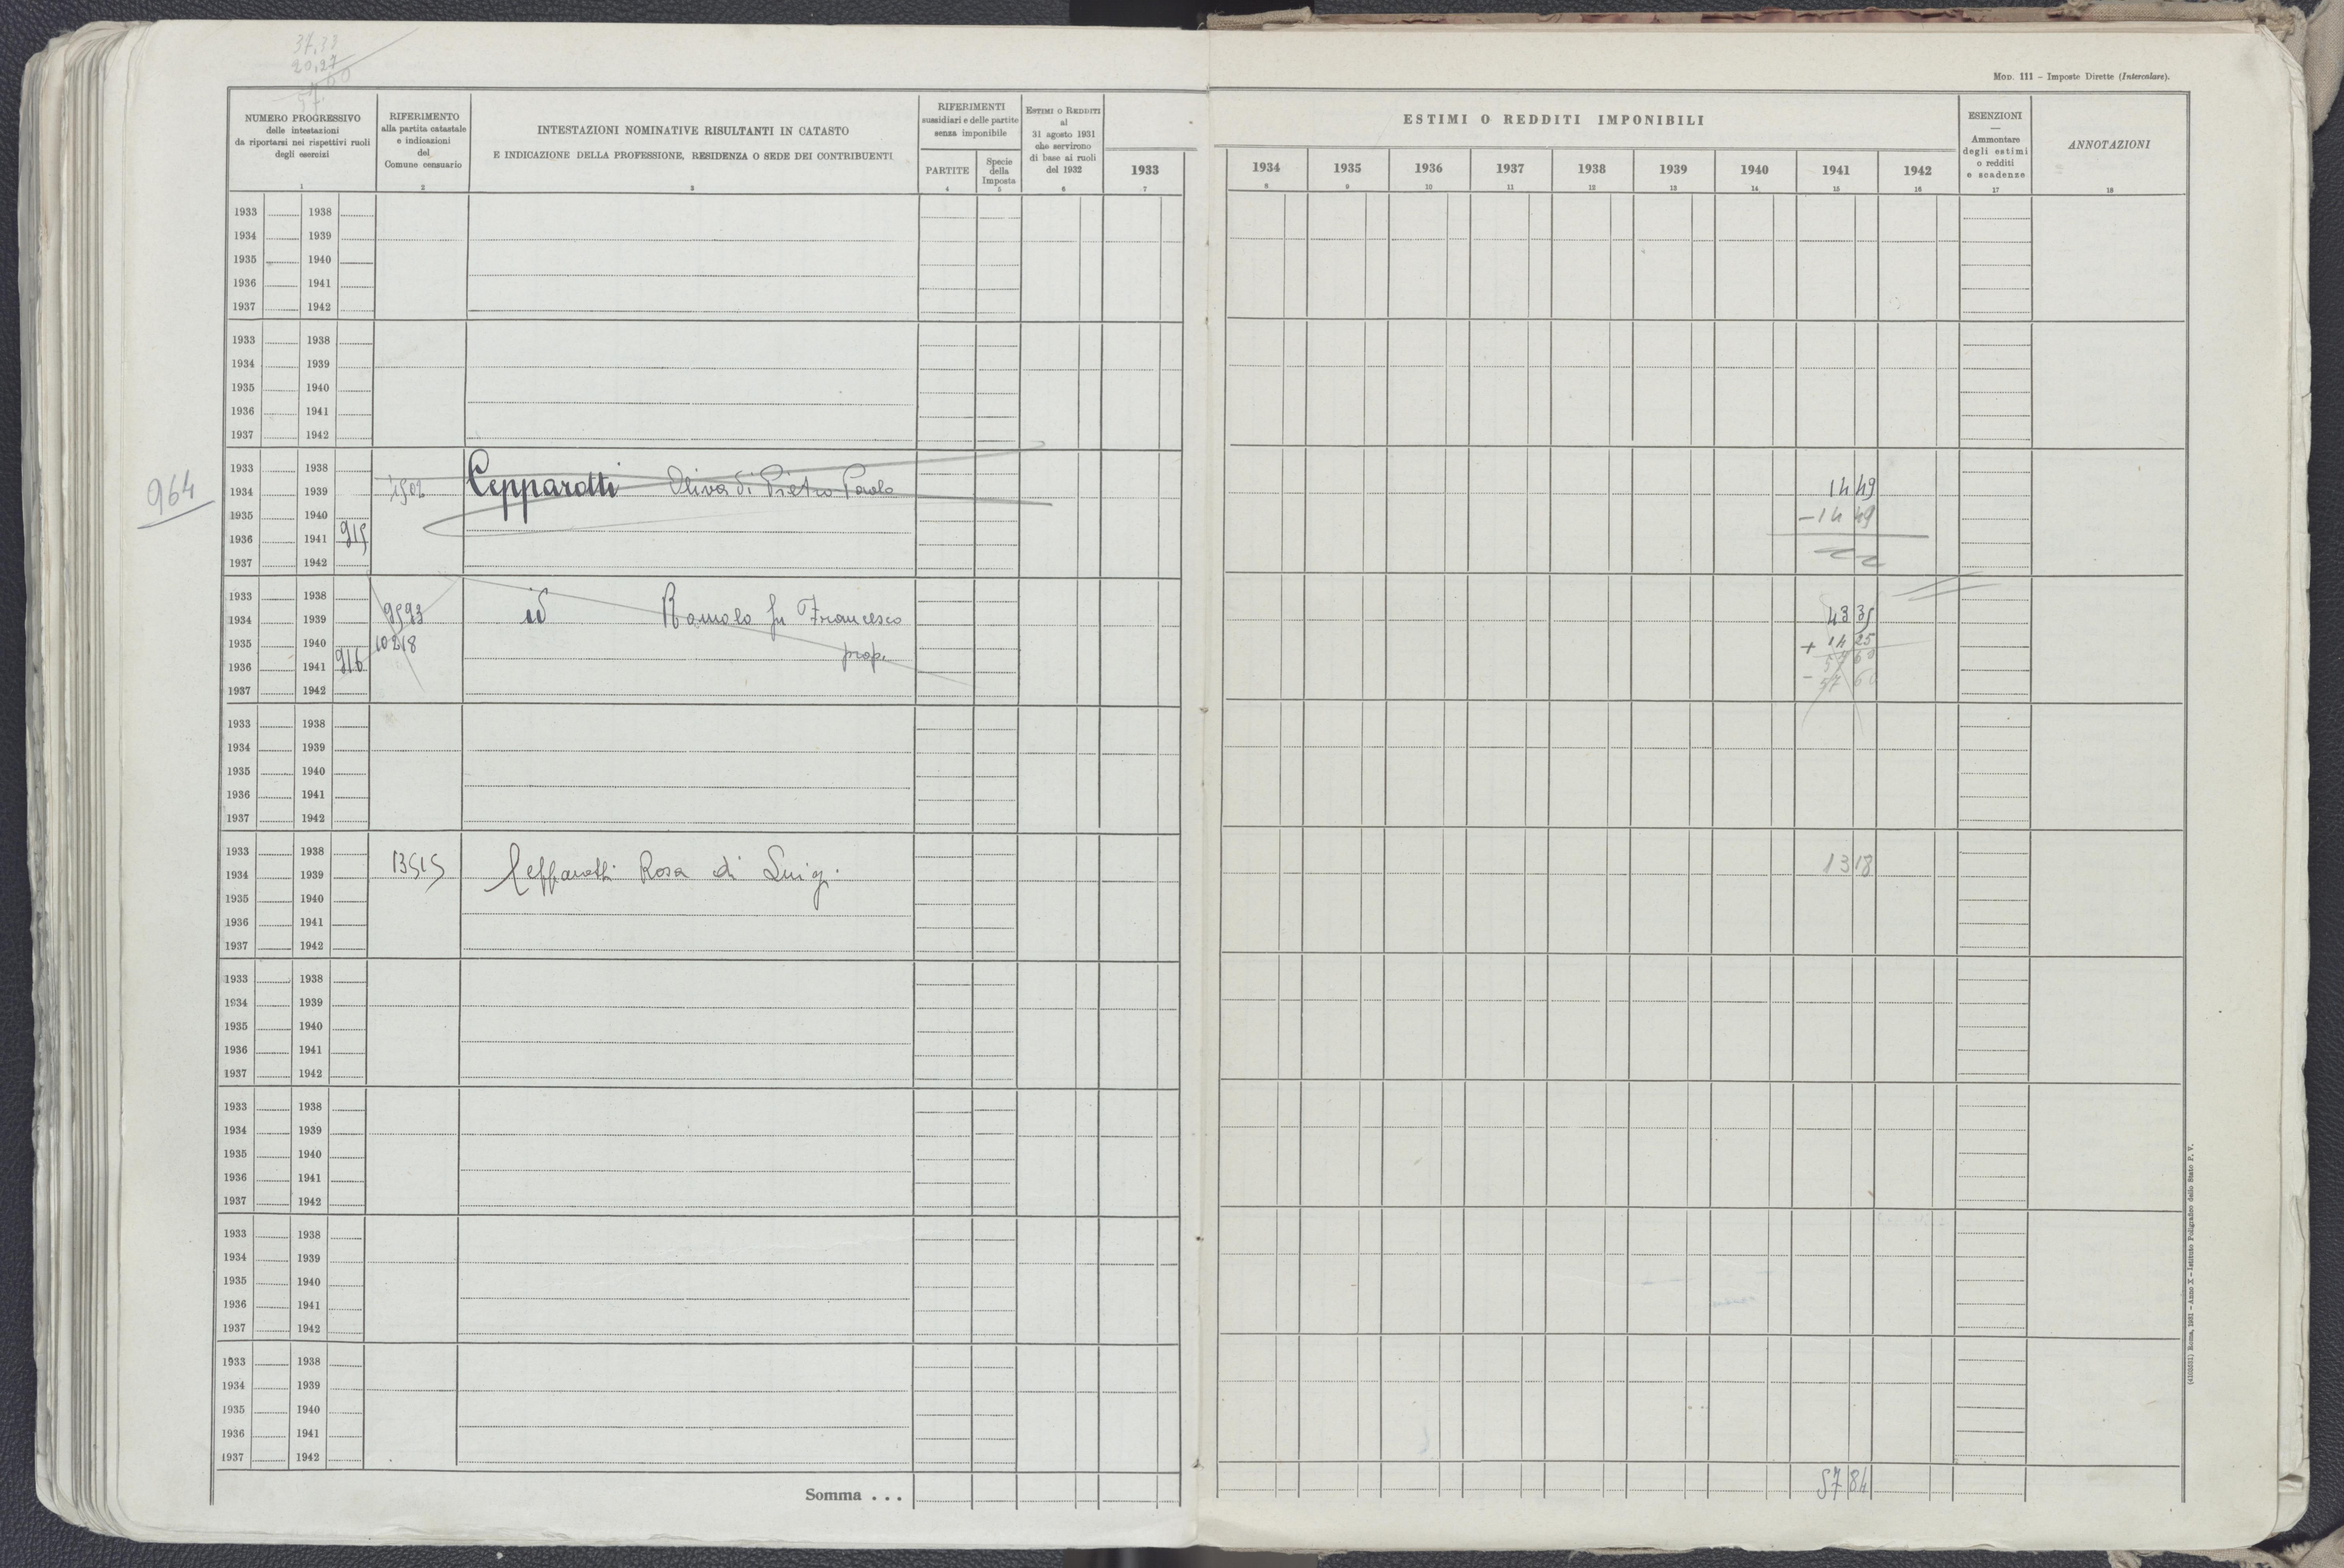 37,33
20,27
MOD. 111 – Imposte Dirette (Intercalare).
NUMERO PROGRESSIVO
delle intestazioni
da riportarsi nei rispettivi ruoli
degli esercizi
1
RIFERIMENTO
alla partita catastale
e indicazioni
del
Comune censuario
2
INTESTAZIONI NOMINATIVE RISULTANTI IN CATASTO
E INDICAZIONE DELLA PROFESSIONE, RESIDENZA O SEDE DEI CONTRIBUENTI
3
RIFERIMENTI
sussidiari e delle partite
senza imponibile
PARTITE
4
Specie
della
Imposta
5
ESTIMI O REDDITI
al
31 agosto 1931
che servirono
di base ai ruoli
del 1932
6
1933
7
ESTIMI O REDDITI IMPONIBILI
1934 1935 1936 1937 1938 1939 1940 1941 1942
8 9 10 11 12 13 14 15 16
ESENZIONI
—
Ammontare
degli estimi
o redditi
e scadenze
17
ANNOTAZIONI
18
1933 1938
1934 1939
1935 1940
1936 1941
1937 1942
1933 1938
1934 1939
1935 1940
1936 1941
1937 1942
964
1933 1938
1934 1939 Cepparotti Oliva di Pietro Paolo 14 49
1935 1940 – 14 49
1936 1941 915
1937 1942
1933 1938
1934 1939 9593 id Romolo fu Francesco 43 35
1935 1940 10218 prop. + 14 25
1936 1941 916 57 60
1937 1942 – 57 60
1933 1938
1934 1939
1935 1940
1936 1941
1937 1942
1933 1938
1934 1939 13515 Cepparotti Rosa di Luigi 13 18
1935 1940
1936 1941
1937 1942
1933 1938
1934 1939
1935 1940
1936 1941
1937 1942
1933 1938
1934 1939
1935 1940
1936 1941
1937 1942
1933 1938
1934 1939
1935 1940
1936 1941
1937 1942
1933 1938
1934 1939
1935 1940
1936 1941
1937 1942
Somma . . . 57 84
Roma, 1931 – Anno X – Istituto Poligrafico dello Stato P. V.